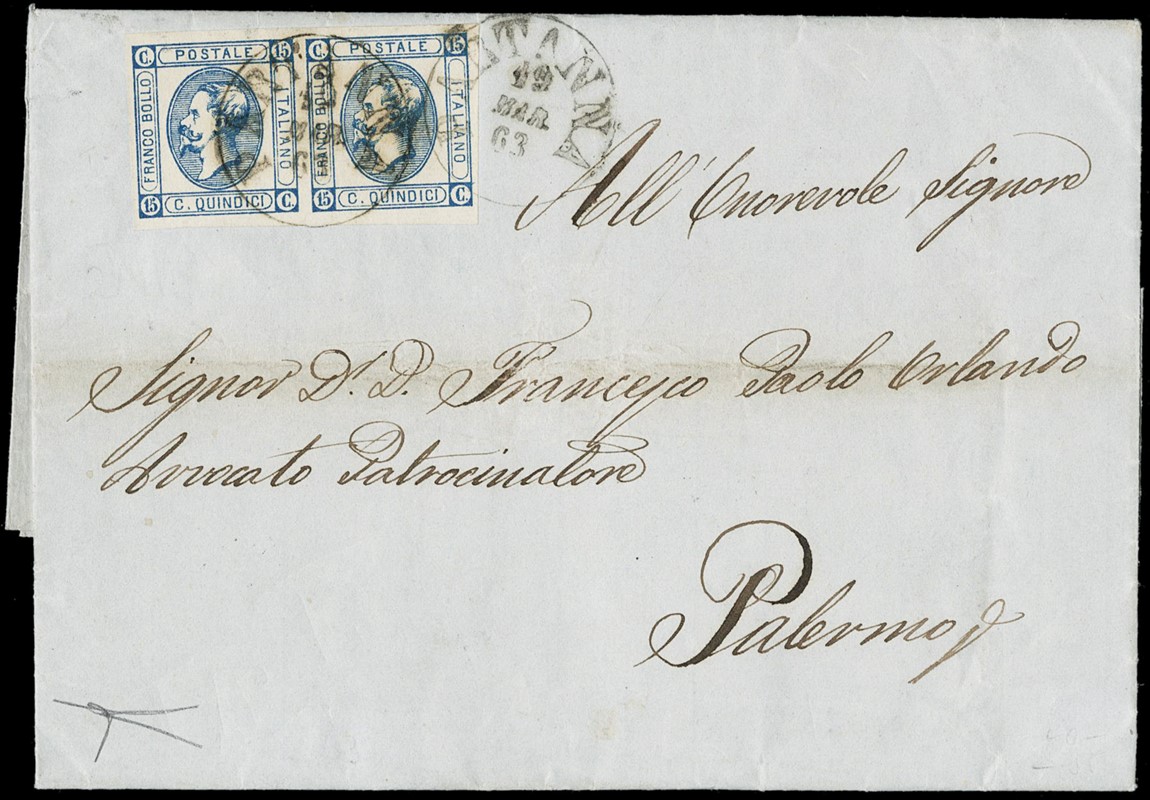 C. POSTALE 15
FRANCO BOLLO
ITALIANO
15 C. QUINDICI C.
C. POSTALE 15
FRANCO BOLLO
ITALIANO
15 C. QUINDICI C.
19
MAR.
63
All' Onorevole Signore
Signor Dr. D. Francesco Paolo Orlando
Avvocato Patrocinatore
Palermo